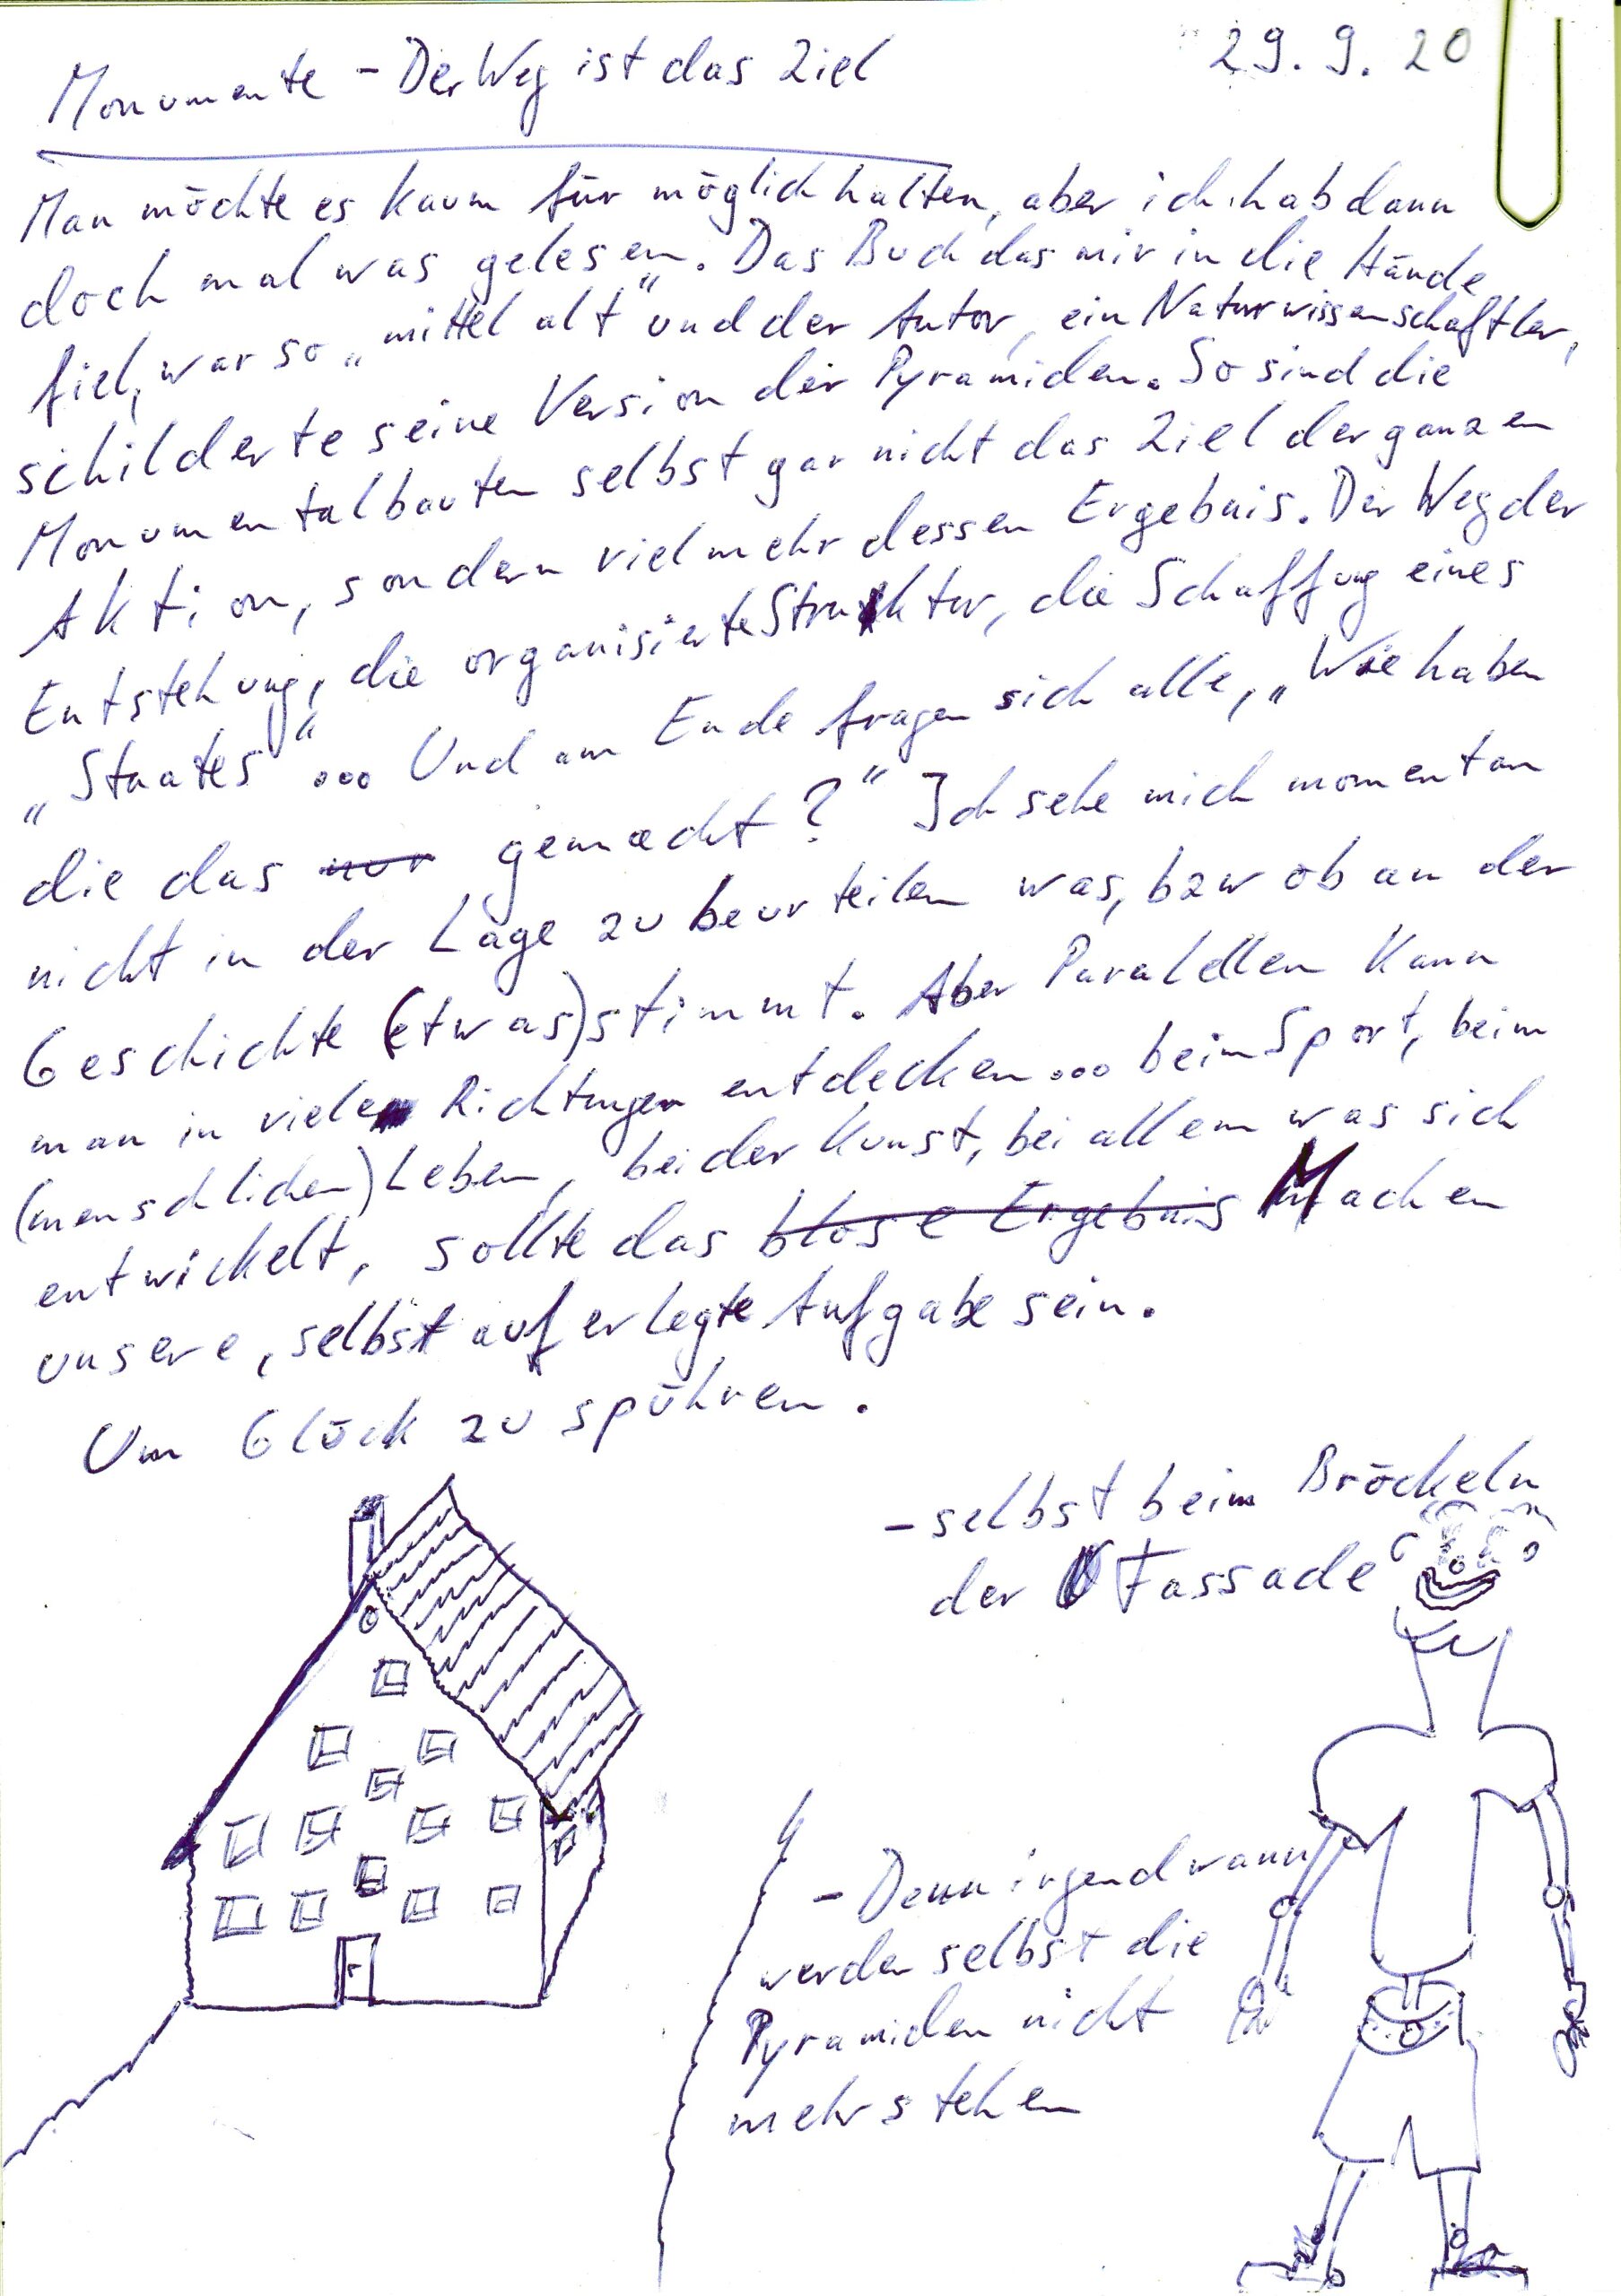 Monumente - Der Weg ist das Ziel
29.9.20
Man möchte es kaum für möglich halten, aber ich hab dann
doch mal was gelesen. Das Buch das mir in die Hände
fiel, war so „mittel alt" und der Autor, ein Naturwissenschaftler,
schilderte seine Version der Pyramiden. So sind die
Monumentalbauten selbst gar nicht das Ziel der ganzen
Aktion, sondern vielmehr dessen Ergebnis. Der Weg der
Entstehung, die organisierte Struktur, die Schaffung eines
„Staates" ... Und am Ende fragen sich alle, „Wie haben
die das nur gemacht?" Ich sehe mich momentan
nicht in der Lage zu beurteilen was, bzw ob an der
Geschichte (etwas) stimmt. Aber Paralellen kann
man in viele Richtungen entdecken... beim Sport, beim
(menschlichen) Leben, bei der Kunst, bei allem was sich
entwickelt, sollte das blose Ergebnis Machen
unsere, selbst auferlegte Aufgabe sein.
Um Glück zu spühren.
- selbst beim Bröckeln
der Fassade
- Denn irgendwann
werden selbst die
Pyramiden nicht
mehr stehen